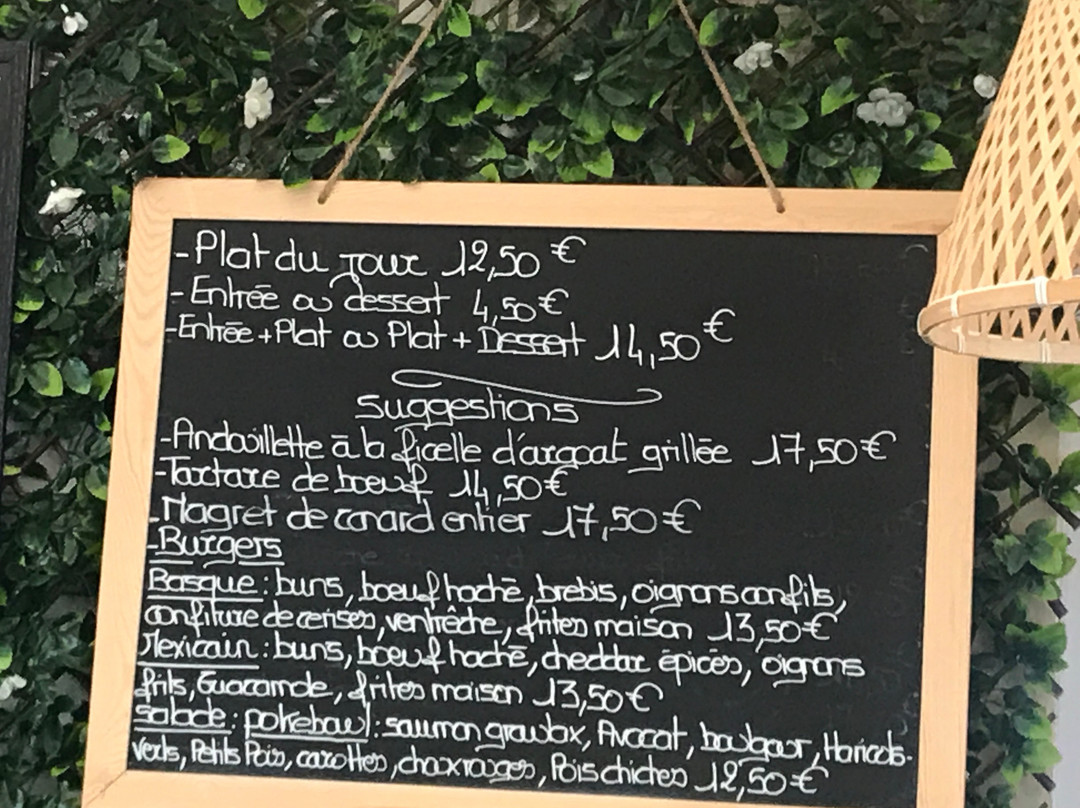 - Plat du jour 12,50€
- Entrée ou dessert 4,50€
- Entrée + Plat ou Plat + Dessert 14,50€
Suggestions
- Andouillette à la ficelle d'argoat grillée 17,50€
- Tartare de boeuf 14,50€
- Magret de canard entier 17,50€
- Burgers
Basque : buns, boeuf haché, brebis, oignons confits,
confiture de cerises, ventrêche, frites maison 13,50€
Mexicain : buns, boeuf haché, cheddar épicés, oignons
frits, Guacamole, frites maison 13,50€
Salade : pokebowl : saumon gravlax, Avocat, boulgour, Haricots-
verts, Petits Pois, carottes, choux rouges, Pois chiches 12,50€